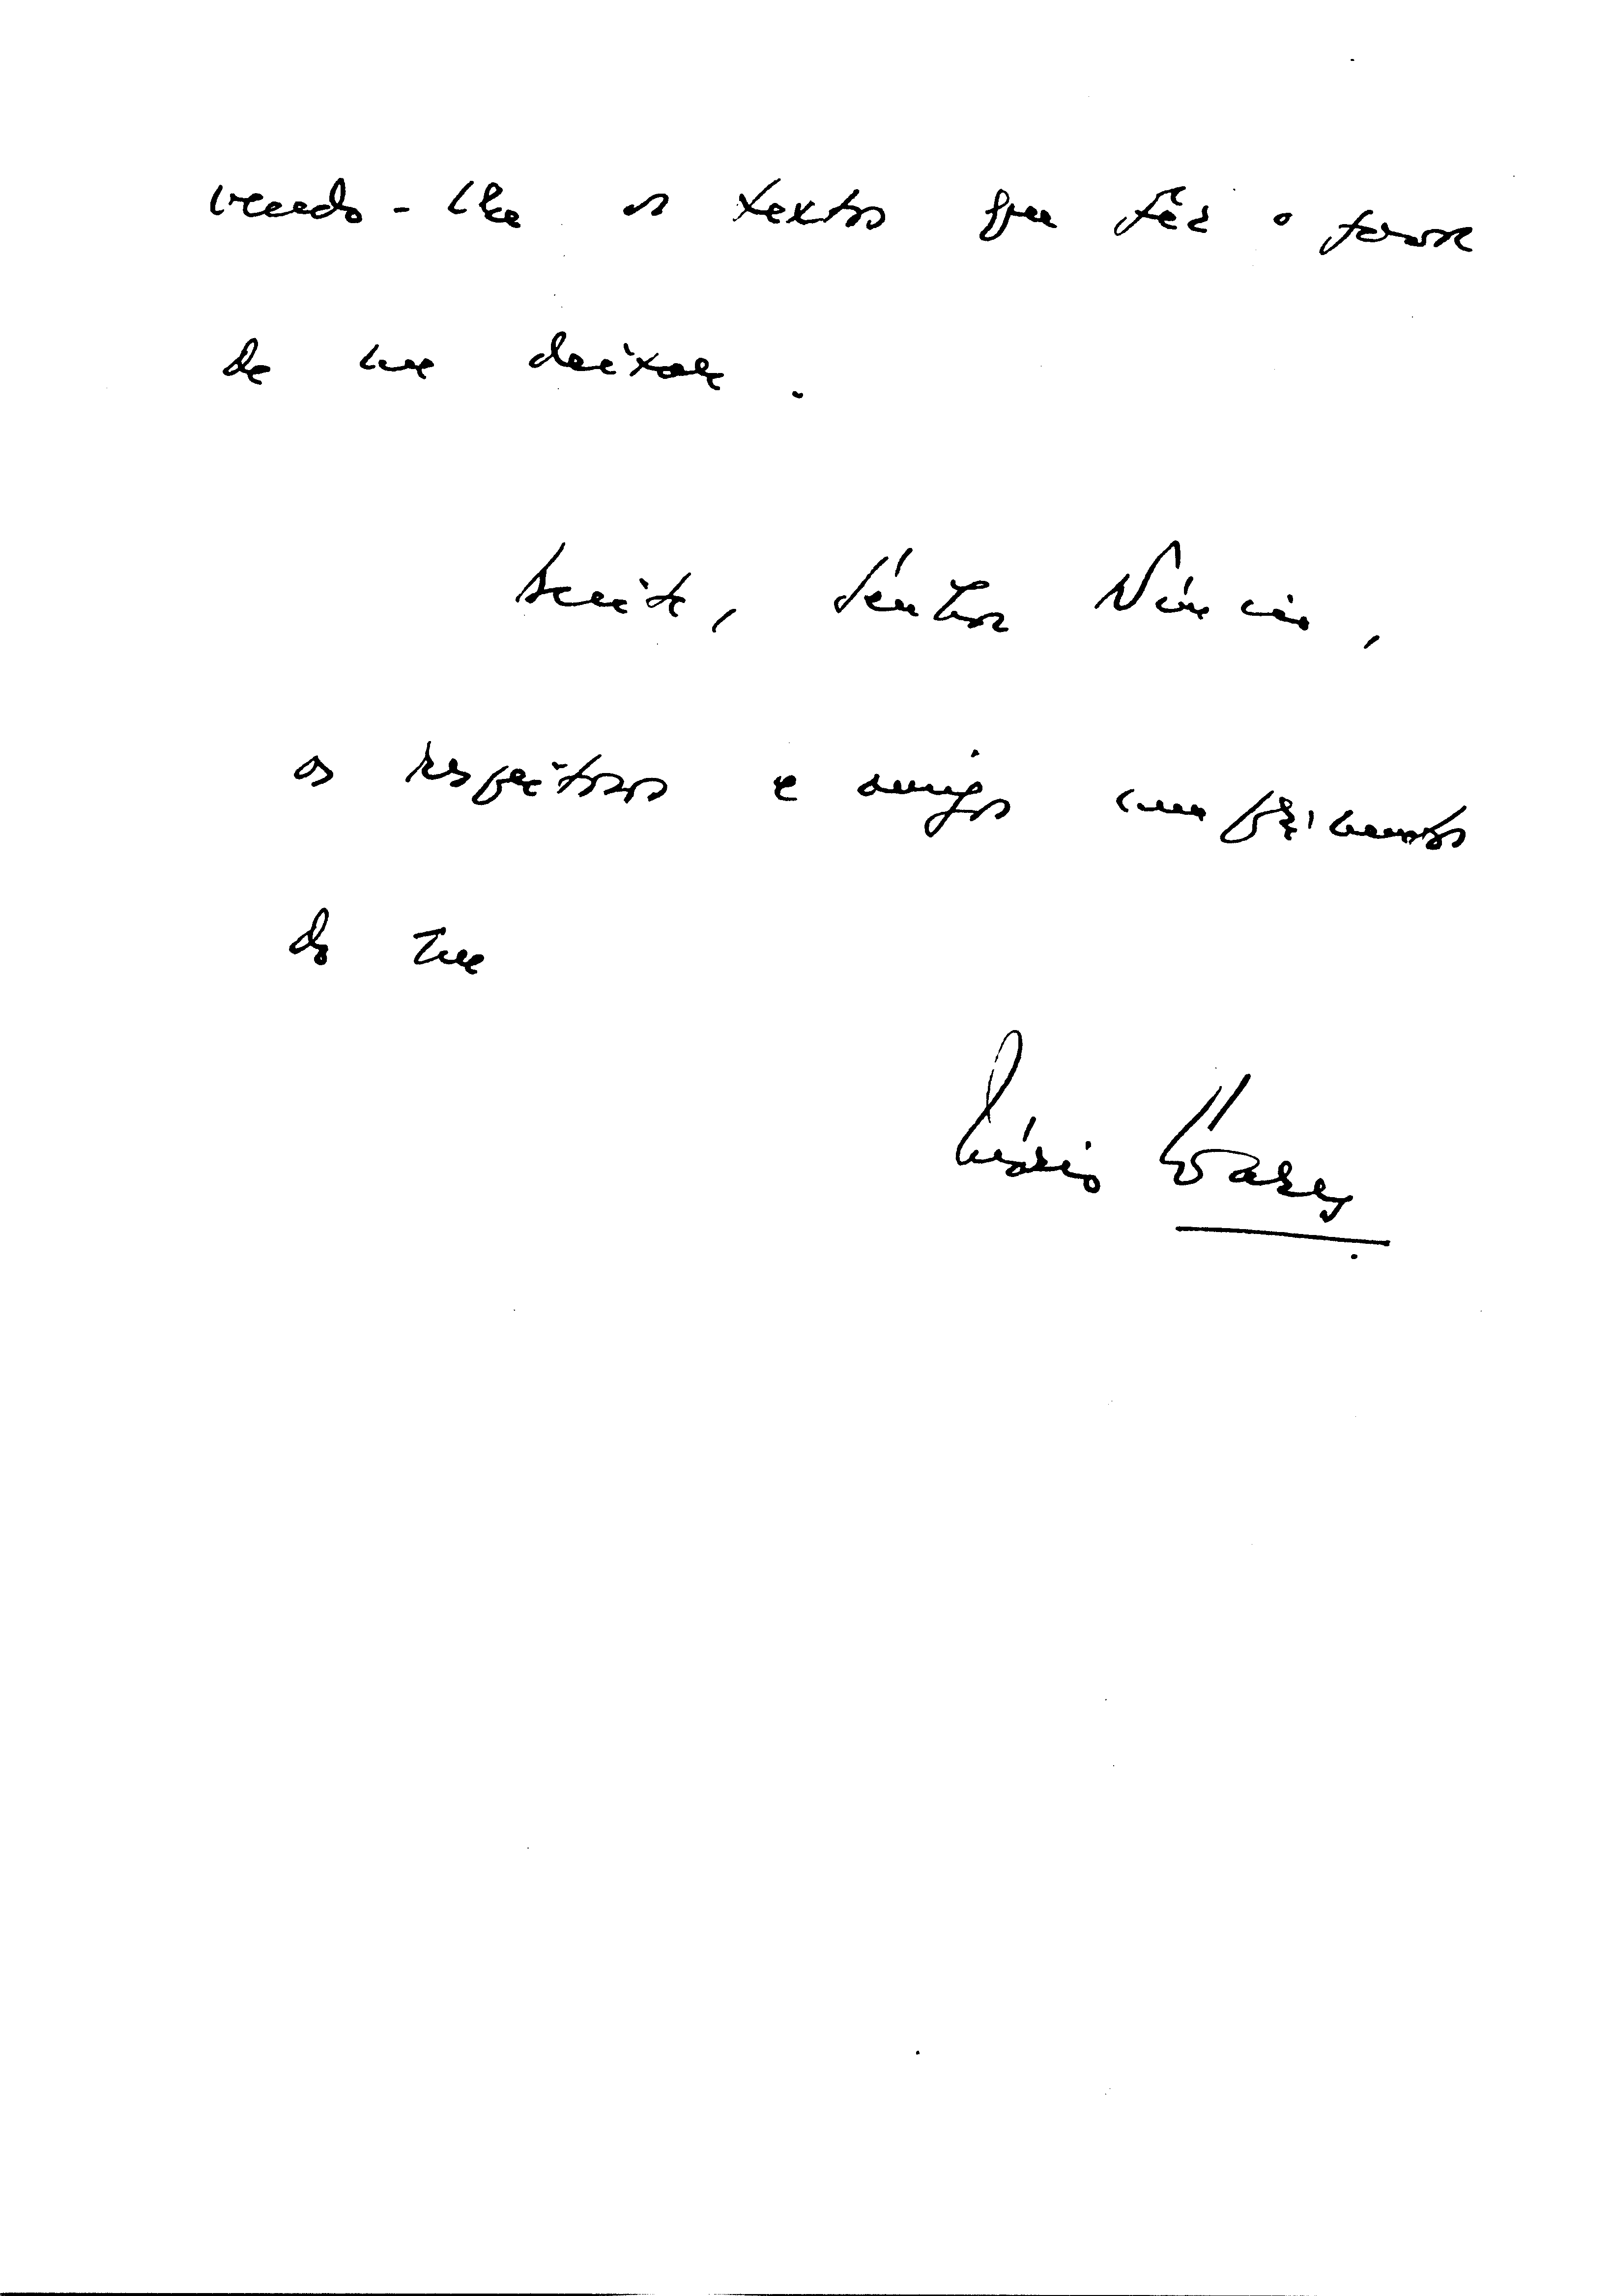 vendo-lhe os textos que fêz o favor
de me deixar.
Aceite, Senhor Núncio,
os respeitosos e amigos cumprimentos
do seu
Mário Soares